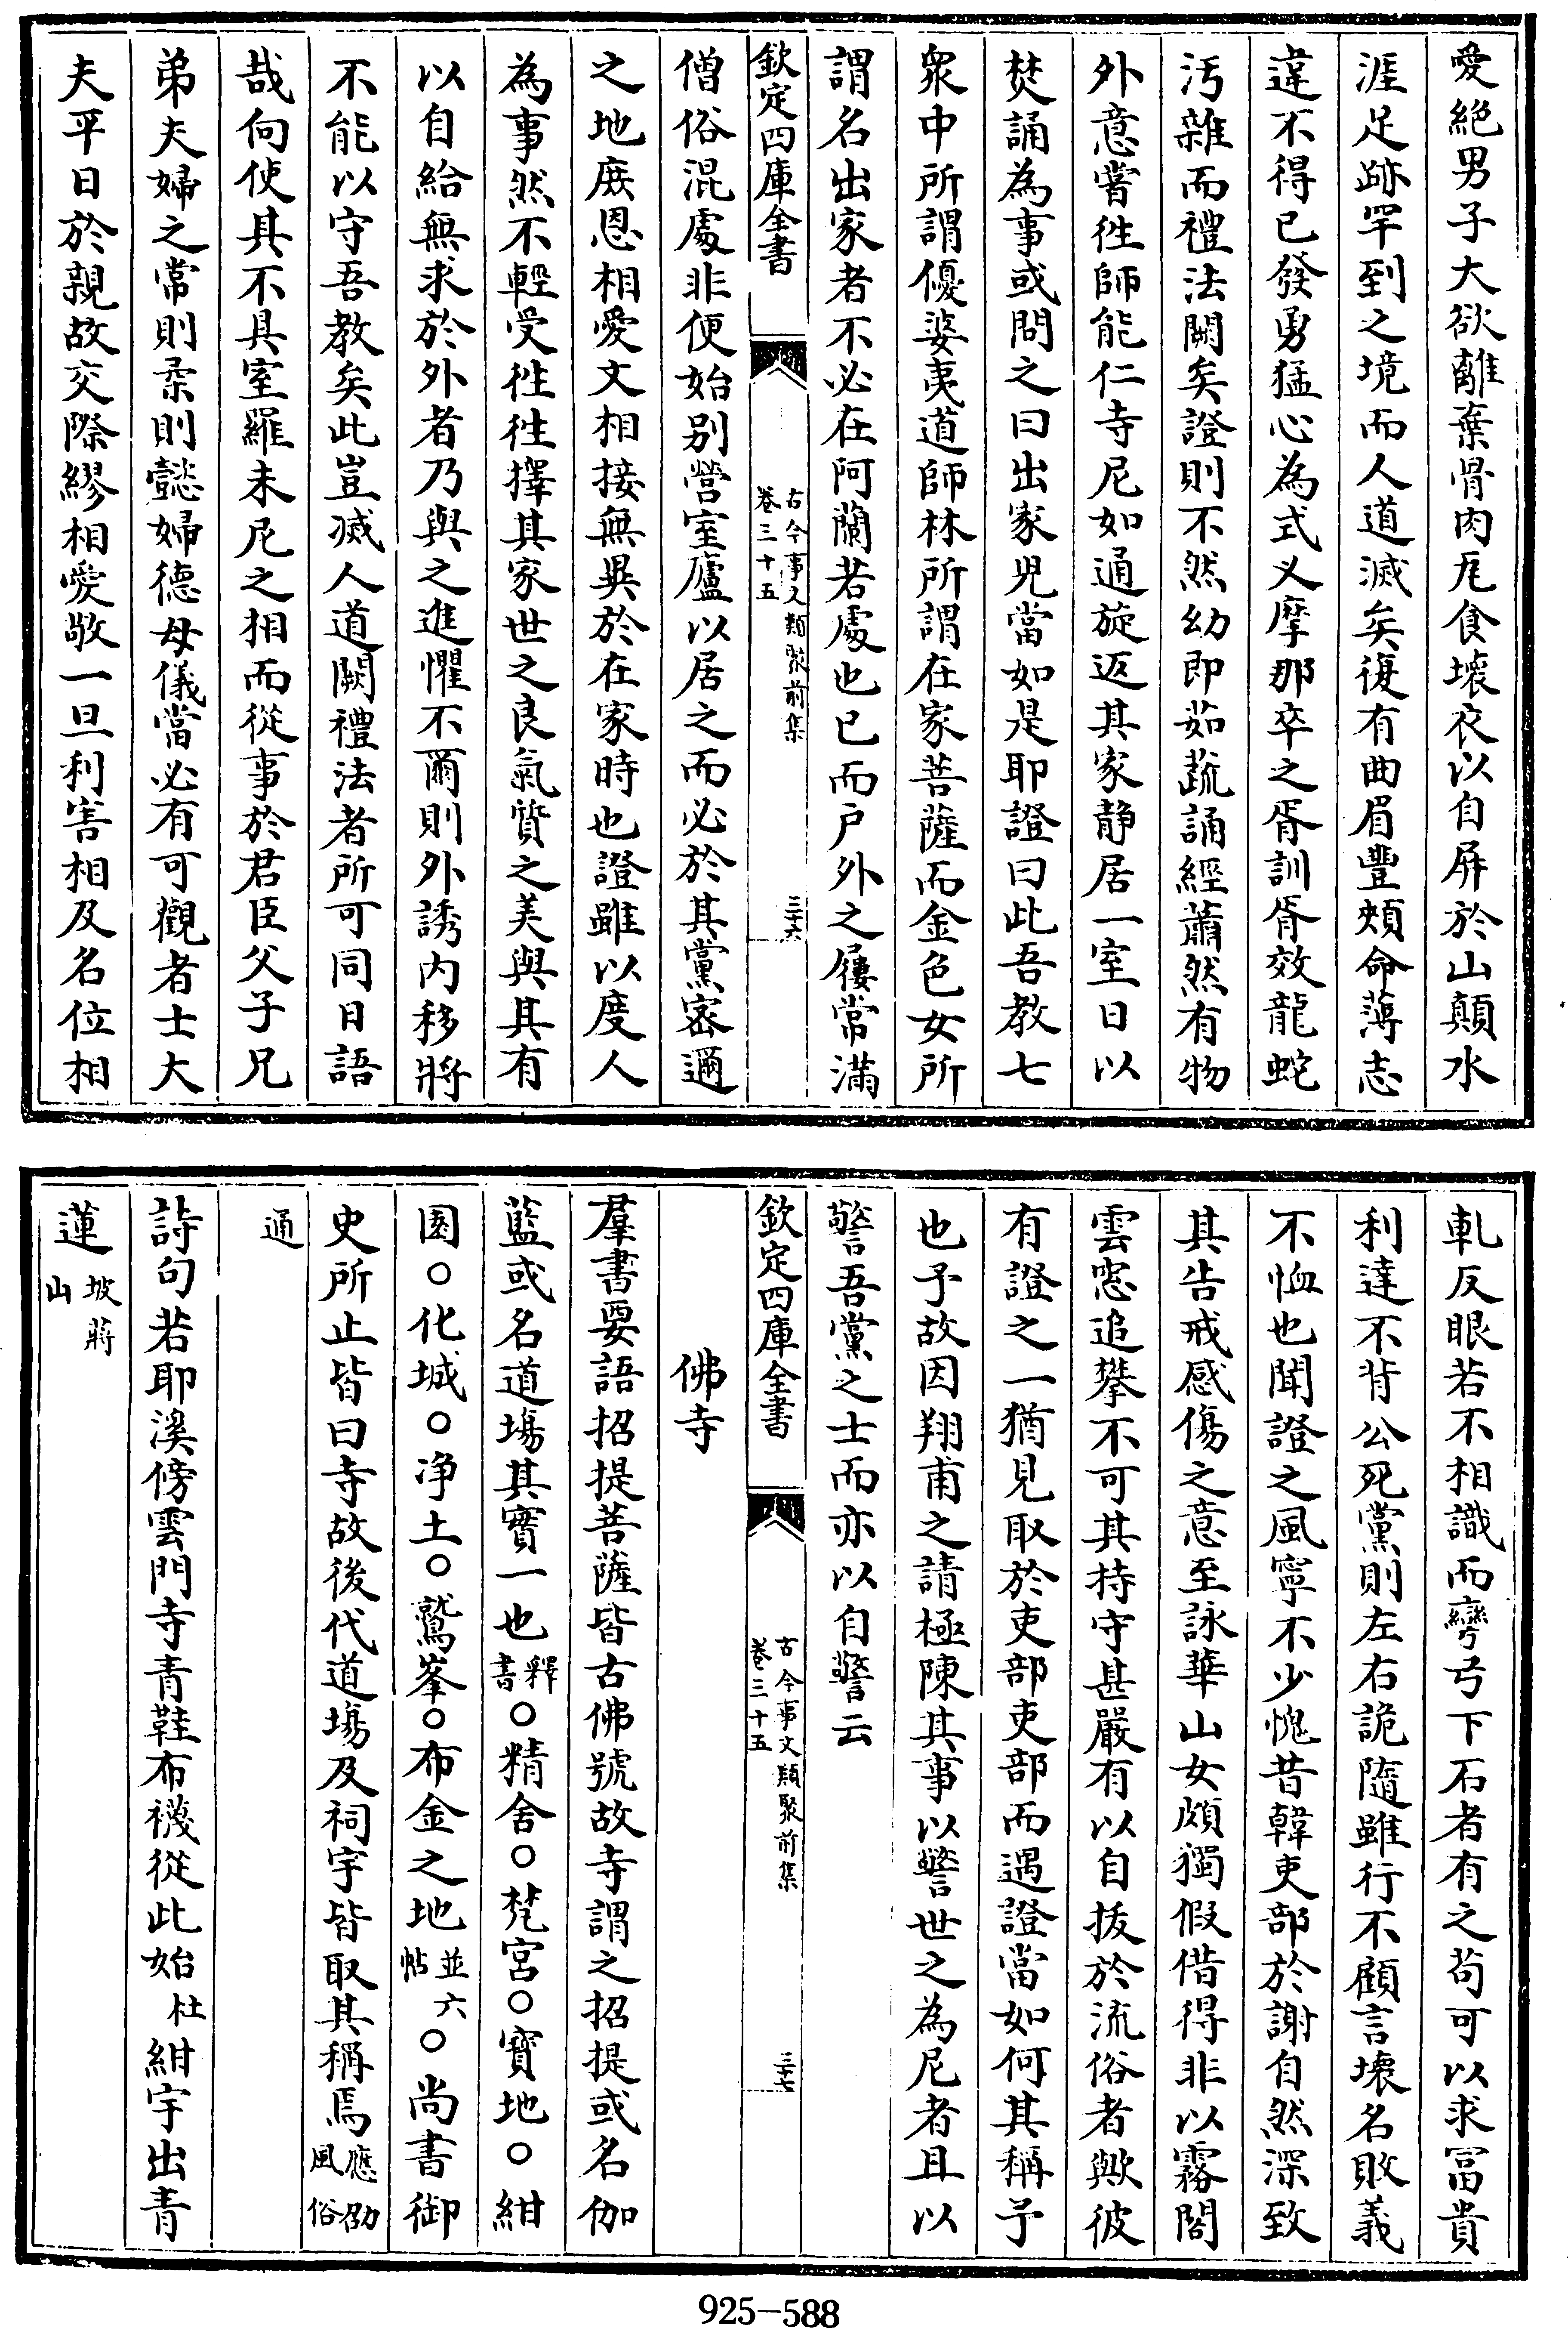 愛絶男子大欲離棄骨肉尨食壊衣以自屏於山顛水
涯足跡罕到之境而人道滅矣復有曲眉豐頰命薄志
違不得已發勇猛心為式义摩那卒之胥訓胥效龍蛇
汚雜而禮法闕矣證則不然幼即茹蔬誦經蕭然有物
外意嘗徃師能仁寺尼如通旋返其家静居一室日以
焚誦為事或問之曰出家兒當如是耶證曰此吾教七
衆中所謂優婆夷道師林所謂在家菩薩而金色女所
謂名出家者不必在阿蘭若處也已而戶外之屨常滿
欽定四庫全書
古今事文類聚前集
卷三十五
三十六
僧俗混處非便始别營室廬以居之而必於其黨宻邇
之地庻恩相愛文相接無異於在家時也證雖以度人
為事然不輕受徃徃擇其家世之良氣質之美與其有
以自給無求於外者乃與之進懼不爾則外誘内移將
不能以守吾教矣此豈滅人道闕禮法者所可同日語
哉向使其不具室羅末尼之相而從事於君臣父子兄
弟夫婦之常則柔則懿婦德母儀當必有可觀者士大
夫平日於親故交際繆相愛敬一旦利害相及名位相
軋反眼若不相識而彎弓下石者有之茍可以求冨貴
利達不背公死黨則左右詭隨雖行不顧言壊名敗義
不恤也聞證之風寧不少愧昔韓吏部於謝自然深致
其告戒感傷之意至詠華山女頗獨假借得非以霧閤
雲窓追攀不可其持守甚嚴有以自拔於流俗者歟彼
有證之一猶見取於吏部吏部而遇證當如何其稱予
也予故因翔甫之請極陳其事以警世之為尼者且以
警吾黨之士而亦以自警云
欽定四庫全書
古今事文類聚前集
卷三十五
三十七
佛寺
羣書要語招提菩薩皆古佛號故寺謂之招提或名伽
藍或名道塲其實一也釋書○精舍○梵宮○寶地○紺
園○化城○净土○鷲峯○布金之地並六帖○尚書御
史所止皆曰寺故後代道塲及祠宇皆取其稱焉應劭風俗
通
詩句若耶溪傍雲門寺青鞋布襪從此始杜紺宇出青
蓮坡蔣山
925-588